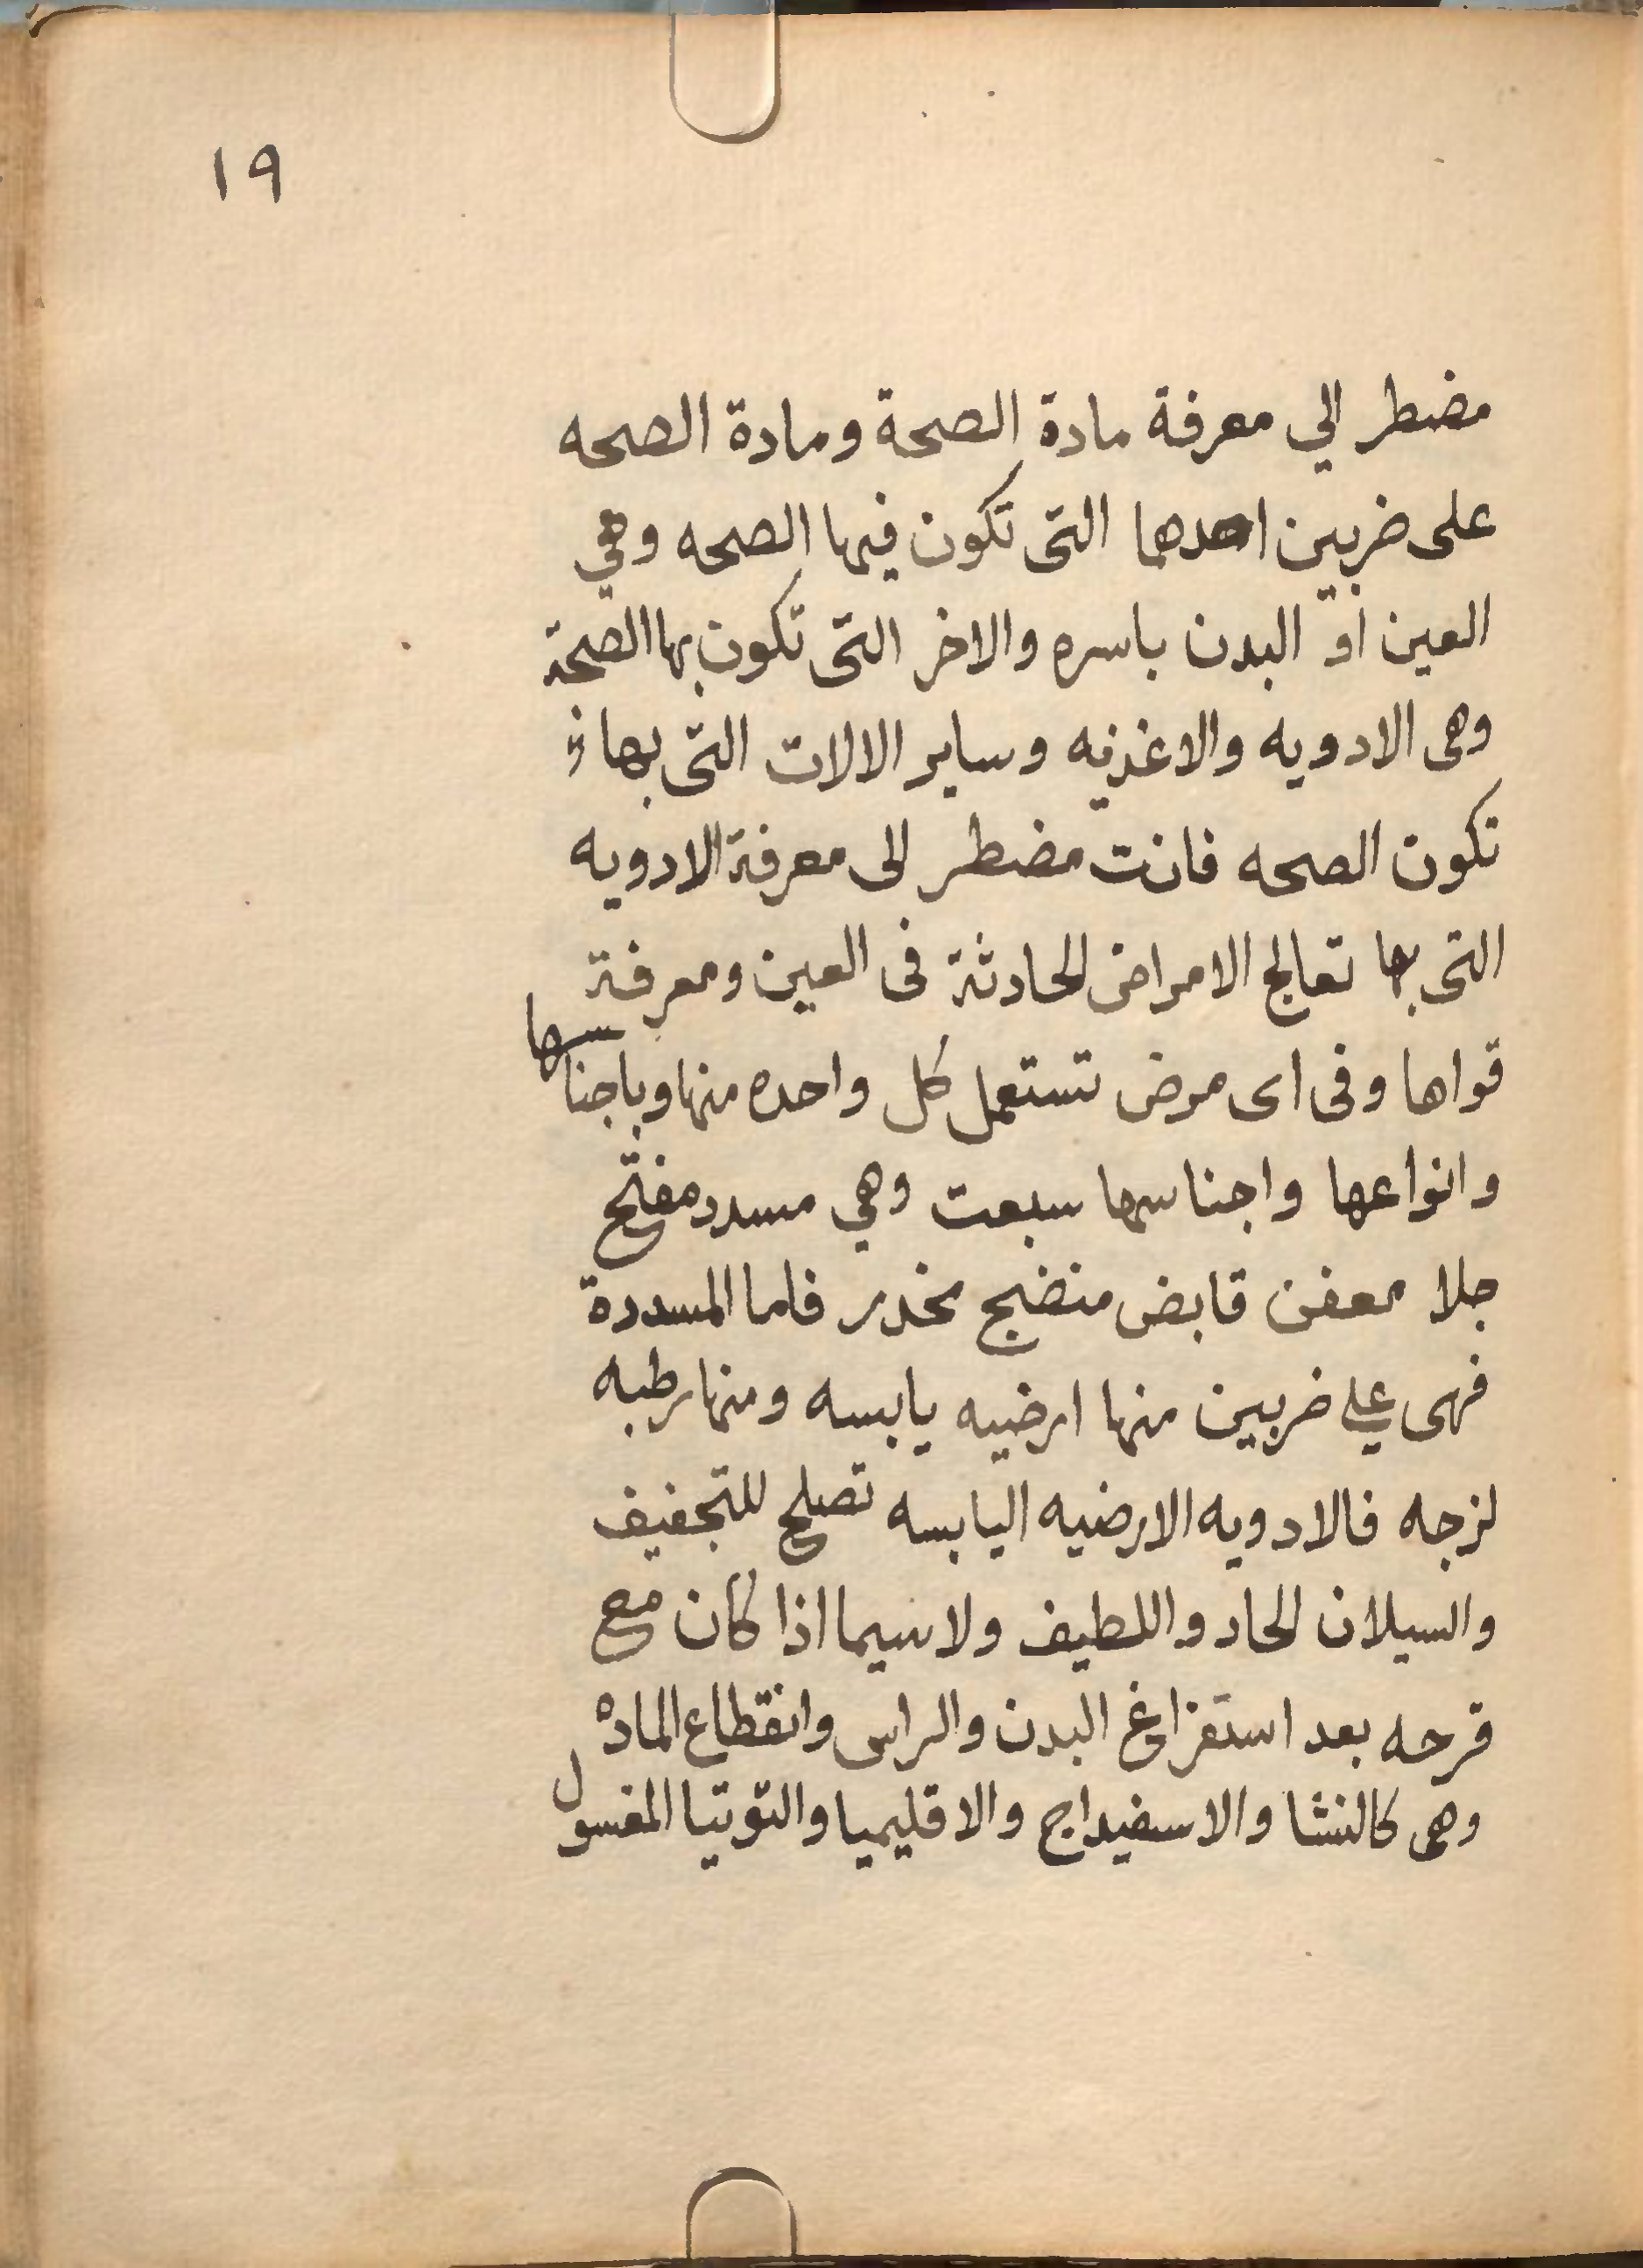 ١٩
مضطر الي معرفة مادة الصحة ومادة الصحه
على ضربين احدهما التى تكون فيها الصحه وهي
العين او البدن باسره والاخر التى تكون بها الصحة
وهى الادويه والاغذيه وساير الالات التى بها
تكون الصحه فانت مضطر الى معرفة الادويه
التى بها تعالج الامراض الحادثة فى العين ومعرفة
قواها وفى اى مرض تستعمل كل واحده منها وباجناسها
وانواعها واجناسها سبعت وهي مسدد مفتح
جلا معفن قابض منضج مخدر فاما المسددة
فهى علي ضربين منها ارضيه يابسه ومنها رطبه
لزجه فالادويه الارضيه اليابسه تصلح للتجفيف
والسيلان الحاد واللطيف ولاسيما اذا كان مع
قرحه بعد استفراغ البدن والراس وانقطاع الماده
وهى كالنشا والاسفيداج والاقليميا والتوتيا المغسول